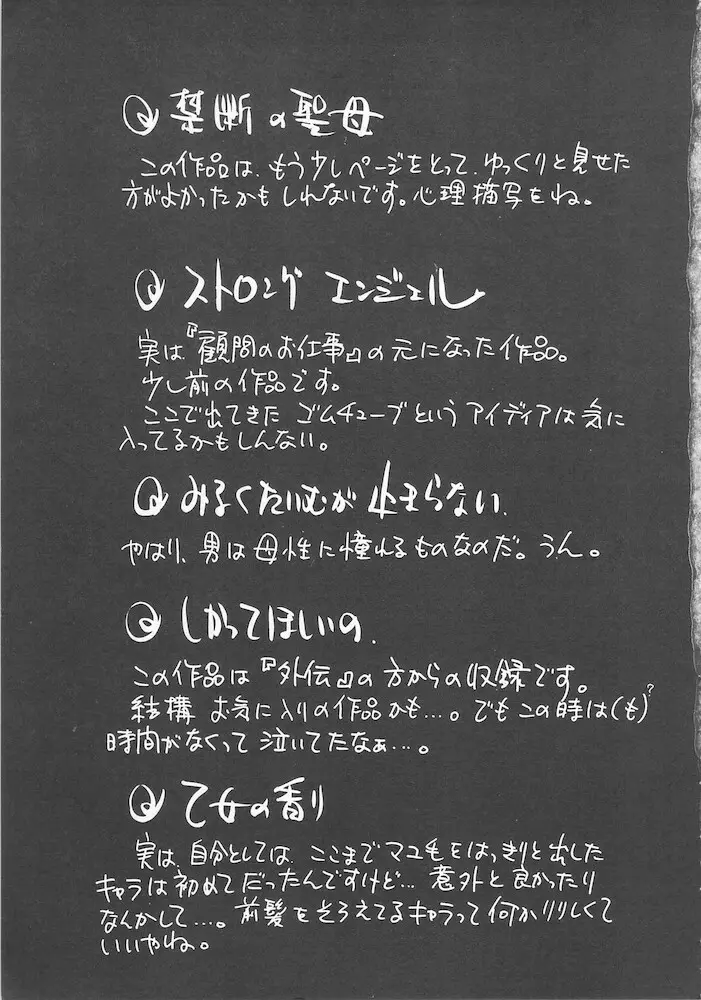 禁断の聖母
この作品は、もう少しページをとって、ゆっくりと見せた
方がよかったかもしれないです。心理描写をね。
ストロング エンジェル
実は『顧問のお仕事』の元になった作品。
少し前の作品です。
ここで出てきた ゴムチューブというアイディアは気に
入ってるかもしんない。
みるくたいむが止まらない.
やはり、男は母性に憧れるものなのだ。うん。
しかってほしいの.
この作品は『外伝』の方からの収録です。
結構 お気に入りの作品かも…。でもこの時は(も)?
時間がなくって泣いてたなぁ…。
乙女の香り
実は、自分としては、ここまでマユ毛をはっきりと出した
キャラは初めてだったんですけど… 意外と良かったり
なんかして…。前髪をそろえてるキャラって何かりりしくて
いいやね。